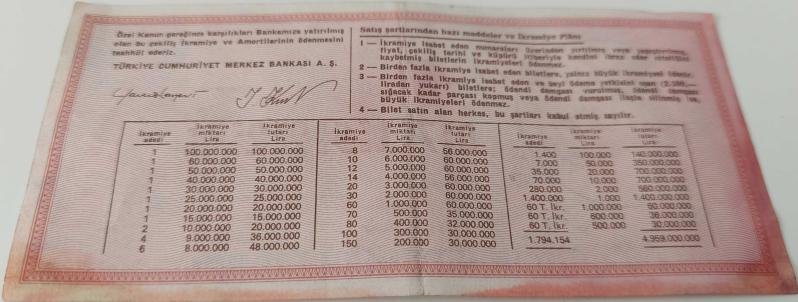 Özel Kanun gereğince karşılıkları Bankamıza yatırılmış
olan bu çekiliş İkramiye ve Amortilerinin ödenmesini
taahhüt ederiz.
TÜRKİYE CUMHURİYET MERKEZ BANKASI A. Ş.
Satış şartlarından bazı maddeler ve İkramiye Plânı
1 — İkramiye isabet eden numaraları üzerinden yırtılmış veya
fiyat, çekiliş tarihi ve küpürü itibariyle kendini ibraz eden
kaybetmiş biletlerin ikramiyeleri ödenmez.
2 — Birden fazla ikramiye isabet eden biletlere, yalnız büyük ikramiyesi ödenir.
3 — Birden fazla ikramiye isabet eden ve bayi ödeme yetkisini aşan (2.500,—
liradan yukarı) biletlere; ödendi damgası vurulmuş, ödendi damgası
sığacak kadar parçası kopmuş veya ödendi damgası ilaçla silinmiş ve
büyük ikramiyeleri ödenmez.
4 — Bilet satın alan herkes, bu şartları kabul etmiş sayılır.
İkramiye adedi İkramiye miktarı Lira İkramiye tutarı Lira
1 100.000.000 100.000.000
1 60.000.000 60.000.000
1 50.000.000 50.000.000
1 40.000.000 40.000.000
1 30.000.000 30.000.000
1 25.000.000 25.000.000
1 20.000.000 20.000.000
1 15.000.000 15.000.000
2 10.000.000 20.000.000
4 9.000.000 36.000.000
6 8.000.000 48.000.000
İkramiye adedi İkramiye miktarı Lira İkramiye tutarı Lira
8 7.000.000 56.000.000
10 6.000.000 60.000.000
12 5.000.000 60.000.000
14 4.000.000 56.000.000
20 3.000.000 60.000.000
30 2.000.000 60.000.000
60 1.000.000 60.000.000
70 500.000 35.000.000
80 400.000 32.000.000
100 300.000 30.000.000
150 200.000 30.000.000
İkramiye adedi İkramiye miktarı Lira İkramiye tutarı Lira
1.400 100.000 140.000.000
7.000 50.000 350.000.000
35.000 20.000 700.000.000
70.000 10.000 700.000.000
280.000 2.000 560.000.000
1.400.000 1.000 1.400.000.000
60 T. İkr. 1.000.000 60.000.000
60 T. İkr. 600.000 36.000.000
60 T. İkr. 500.000 30.000.000
1.794.154 4.959.000.000